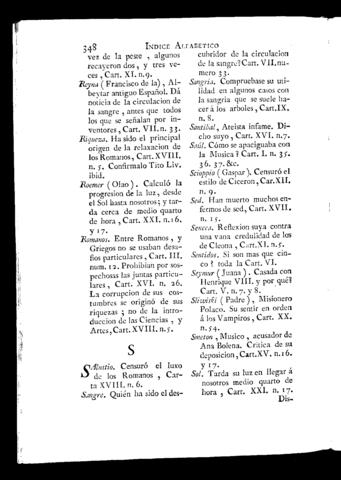 348 INDICE ALFABETICO
vez de la peste , algunos
recayeron dos , y tres ve-
ces , Cart. XI. n.9.
Reyna ( Francisco de la) , Al-
beytar antiguo Español. Dá
noticia de la circulacion de
la sangre , antes que todos
los que se señalan por in-
ventores , Cart. VII. n. 33.
Riqueza. Ha sido el principal
origen de la relaxacion de
los Romanos , Cart. XVIII.
n. 5. Confirmalo Tito Liv.
ibid.
Roemer ( Olao) . Calculó la
progresion de la luz , desde
el Sol hasta nosotros ; y tar-
da cerca de medio quarto
de hora , Cart. XXI. n.16.
y 17.
Romanos. Entre Romanos , y
Griegos no se usaban desa-
fios particulares , Cart. III.
num. 12. Prohibian por sos-
pechosas las juntas particu-
lares , Cart. XVI. n. 26.
La corrupcion de sus cos-
tumbres se originó de sus
riquezas ; no de la intro-
duccion de las Ciencias , y
Artes, Cart. XVIII. n.5.
S
SAlustio. Censuró el luxo
de los Romanos , Car-
ta XVIII. n. 6.
Sangre. Quién ha sido el des-
cubridor de la circulacion
de la sangre? Cart. VII. nu-
mero 33.
Sangria. Compruebase su uti-
lidad en algunos casos con
la sangria que se suele ha-
cer á los arboles , Cart.IX.
n. 8.
Santibal, Ateista infame. Di-
cho suyo , Cart. XVI. n.7.
Saúl. Cómo se apaciguaba con
la Musica ? Cart. I. n. 35.
36. 37. &c.
Scioppio ( Gaspar). Censuró el
estilo de Ciceron, Car.XII.
n.9.
Sed. Han muerto muchos en-
fermos de sed, Cart. XVII.
n. 15.
Seneca. Reflexion suya contra
una vana credulidad de los
de Cleona , Cart.XI. n.5.
Sentidos. Si son mas que cin-
co ? toda la Cart. VI.
Seymur ( Juana ). Casada con
Henrique VIII. y por qué?
Cart. V. n. 7. y 8.
Sliwiski ( Padre) , Misionero
Polaco. Su sentir en orden
á los Vampiros , Cart. XX.
n. 54.
Smeton , Musico , acusador de
Ana Bolena. Critica de su
deposicion, Cart.XV. n.16.
y 17.
Sol. Tarda su luz en llegar á
nosotros medio quarto de
hora , Cart. XXI. n. 17.
Dis-